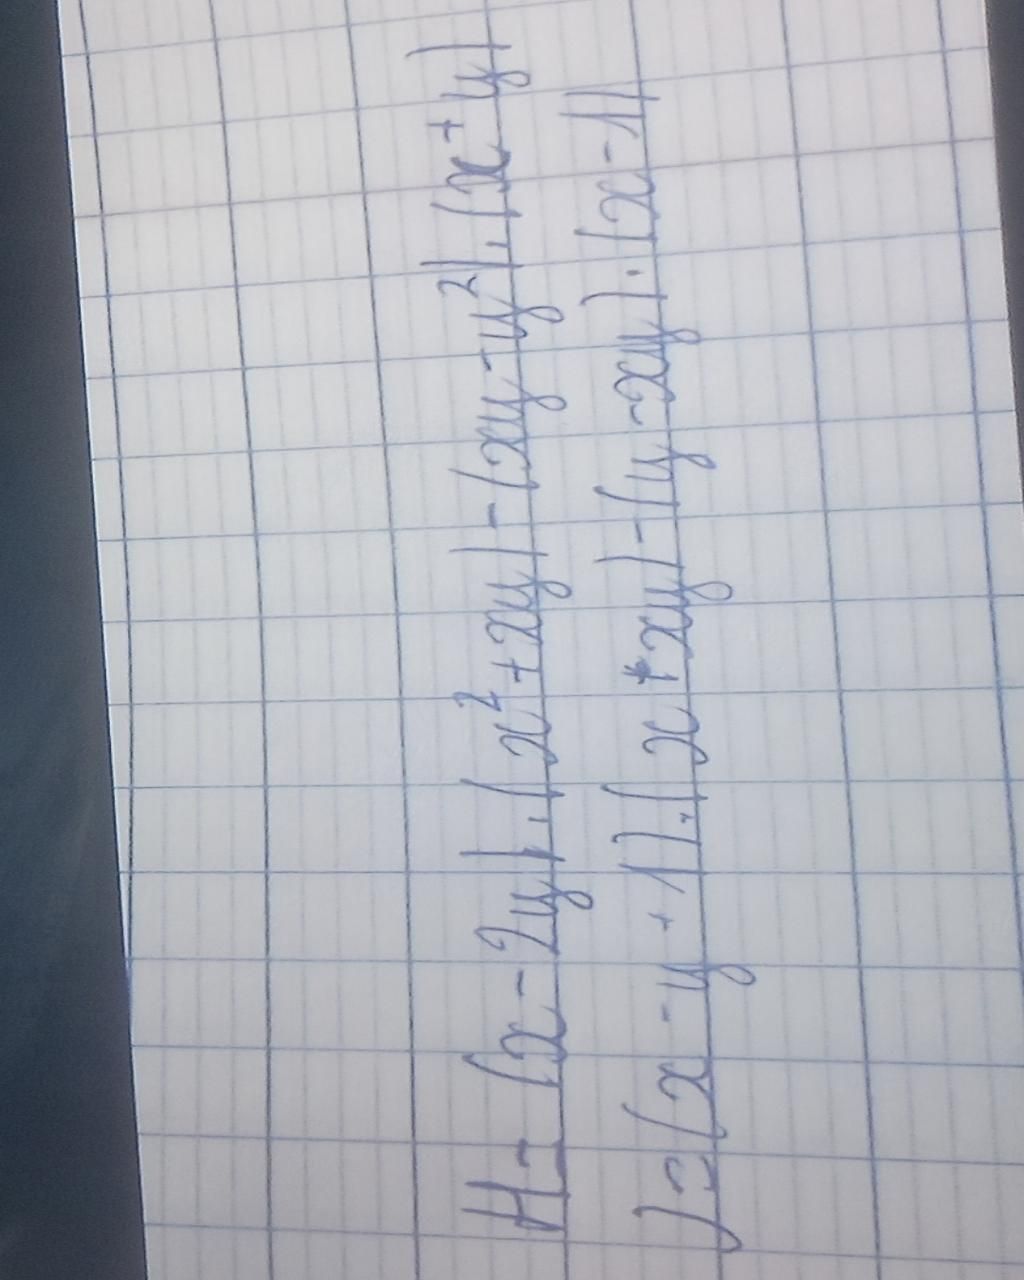 H = (x - 2y).(x² + xy) - (xy - y²).(x + y)
J = (x - y + 1).(x + xy) - (y - xy).(x - 1)